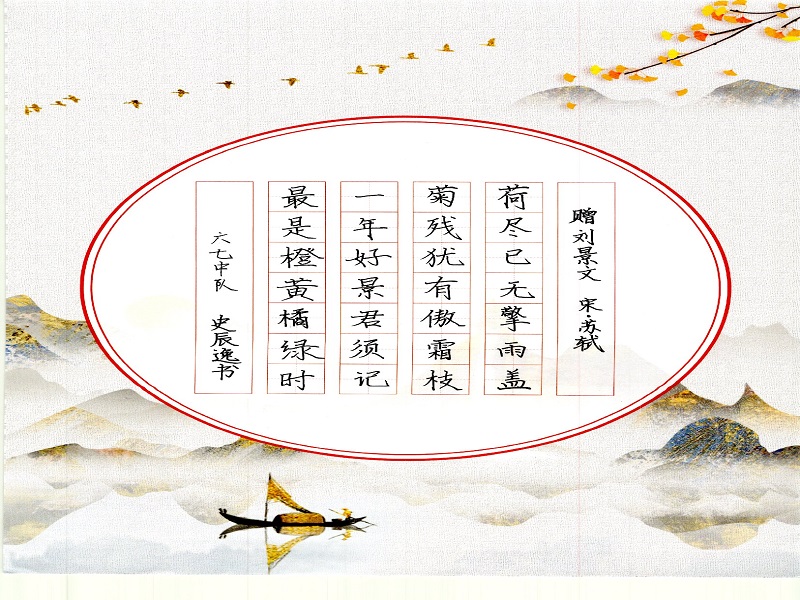 赠刘景文 宋·苏轼
荷尽已无擎雨盖
菊残犹有傲霜枝
一年好景君须记
最是橙黄橘绿时
六七中队 史辰逸书